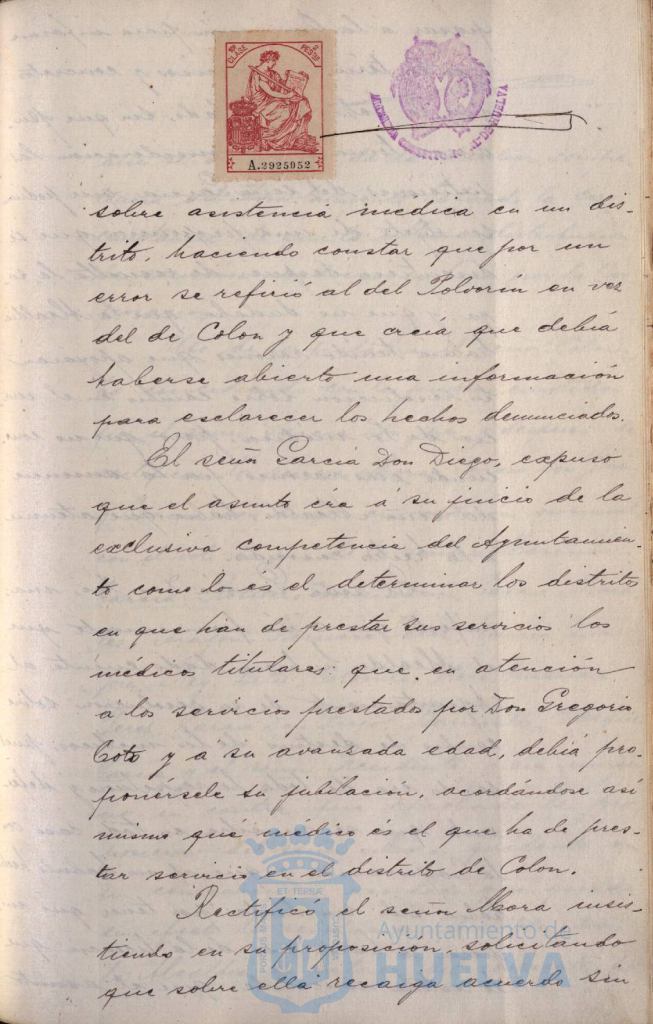 1ª CLASE 2 PESETAS
A.2925052
sobre asistencia médica en un dis-
trito, haciendo constar que por un
error se refirió al del Polvorín en vez
del de Colon y que creía que debía
haberse abierto una información
para esclarecer los hechos denunciados.
El señor García Don Diego, expuso
que el asunto éra á su juicio de la
exclusiva competencia del Ayuntamien-
to como lo és el determinar los distritos
en que han de prestar sus servicios los
médicos titulares: que en atención
a los servicios prestados por Don Gregorio
Coto y á su avanzada edad, debía pro-
ponérsele su jubilación, acordándose asi
mismo qué médico és el que ha de pres-
tar servicio en el distrito de Colon.
Rectificó el señor Mora insis-
tiendo en su proposición, solicitando
que sobre ella recaiga acuerdo sin
Ayuntamiento de
HUELVA